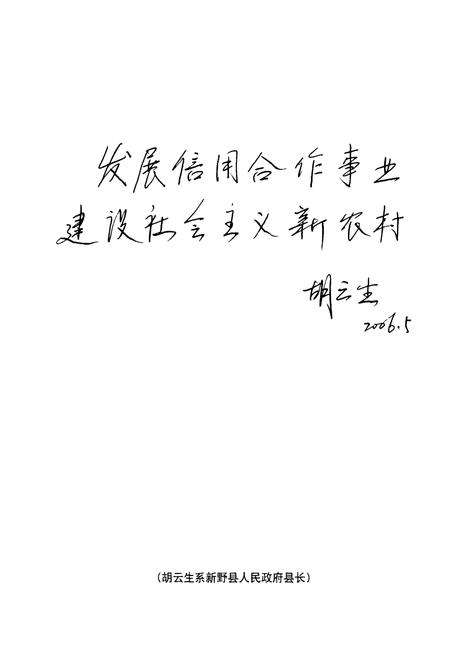 发展信用合作事业
建设社会主义新农村
胡云生
2006.5
(胡云生系新野县人民政府县长)